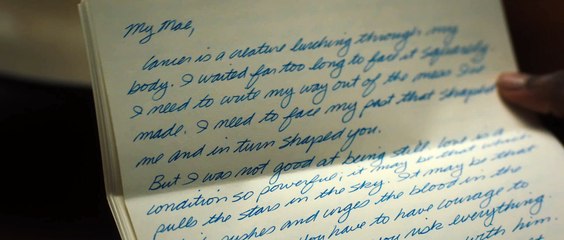 My Mae,
Cancer is a creature lurching through my
body. I waited far too long to face it squarely.
I need to write my way out of the mess I've
made. I need to face my past that shaped
me and in turn shaped you.
But I was not good at being still. Love is a
condition so powerful; it may be that which
pulls the stars in the sky. It may be that
pushes and urges the blood in the
you have to have courage to
you risk everything.
with him.